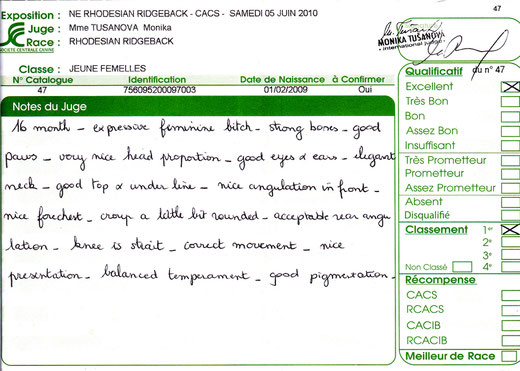 47
Exposition : NE RHODESIAN RIDGEBACK - CACS - SAMEDI 05 JUIN 2010
Juge : Mme TUSANOVA Monika
Race : RHODESIAN RIDGEBACK
SOCIETE CENTRALE CANINE
MONIKA TUSANOVA
Classe : JEUNE FEMELLES
N° Catalogue Identification Date de Naissance à Confirmer
47 756095200097003 01/02/2009 Oui
Notes du Juge
16 month - expressive feminine bitch - strong bones - good
paws - very nice head proportion - good eyes & ears - elegant
neck - good top & under line - nice angulation in front -
nice forchest - croup a little bit rounded - acceptable rear angu
lation - knee is strait - correct movement - nice
presentation - balanced temperament - good pigmentation -
Qualificatif du n° 47
Excellent
Très Bon
Bon
Assez Bon
Insuffisant
Très Prometteur
Prometteur
Assez Prometteur
Absent
Disqualifié
Classement 1er
2e
3e
Non Classé 4e
Récompense
CACS
RCACS
CACIB
RCACIB
Meilleur de Race